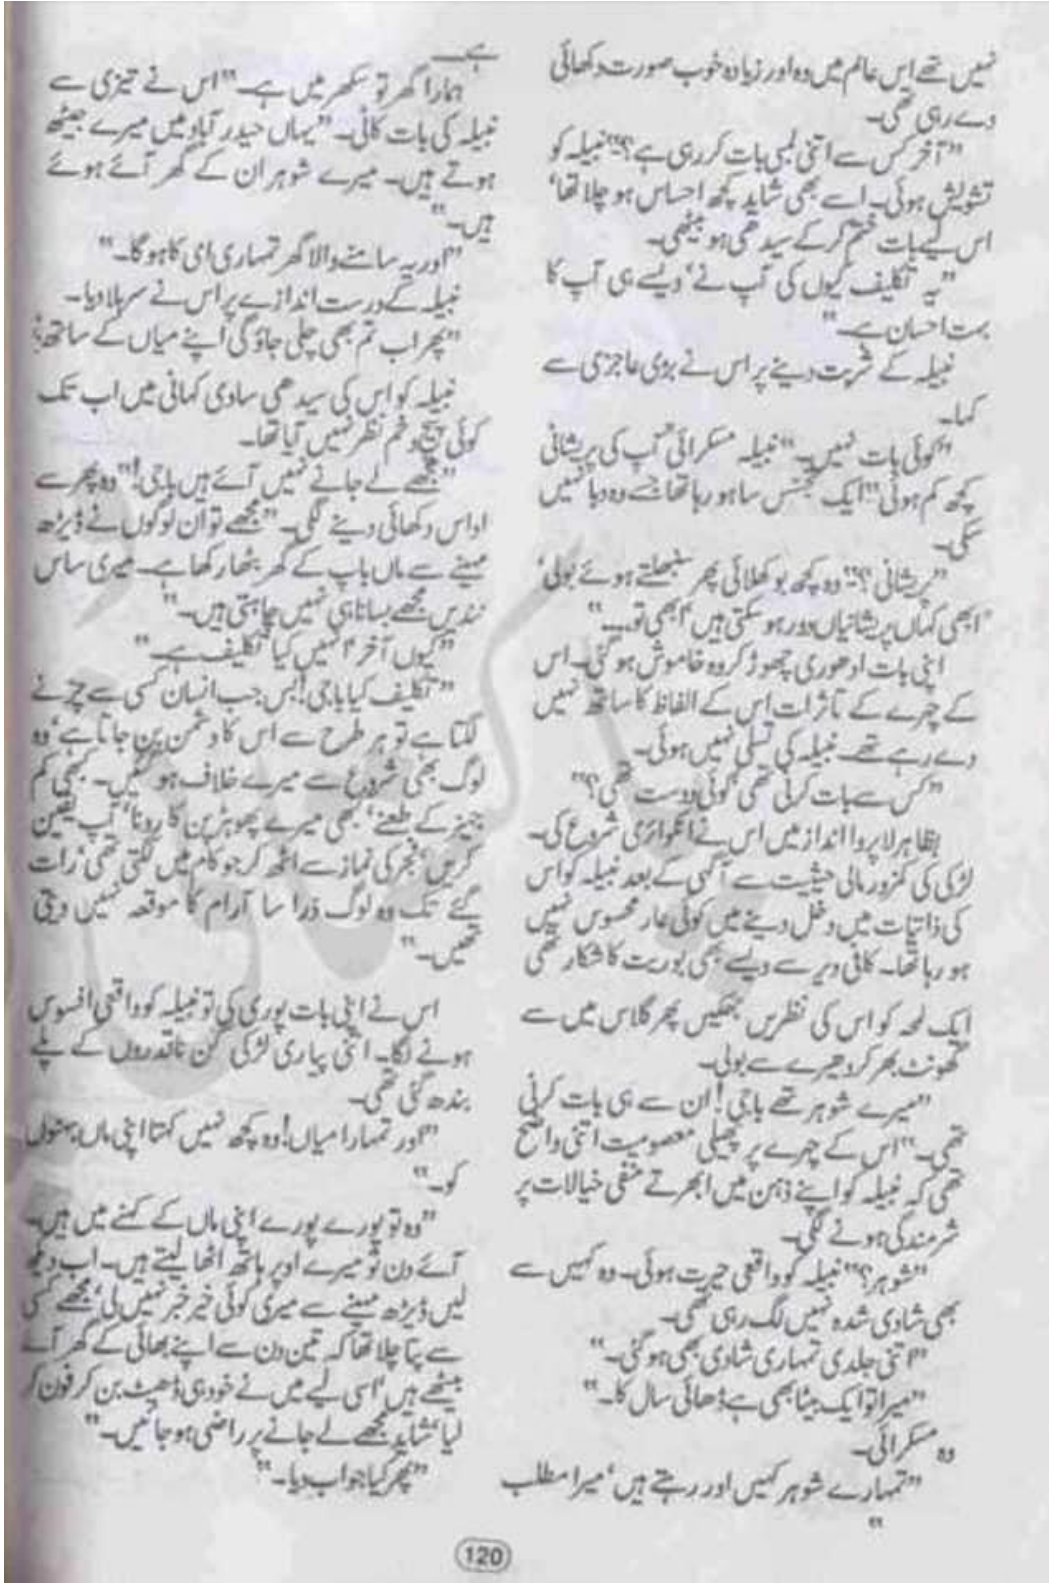 نہیں تھے اس عالم میں وہ اور زیادہ خوب صورت دکھائی
دے رہی تھی۔
”آخر کس سے اتنی لمبی بات کر رہی ہے؟“ نبیلہ کو
تشویش ہوئی۔ اسے بھی شاید کچھ احساس ہو چلا تھا‘
اس لیے بات ختم کر کے سیدھی ہو بیٹھی۔
”یہ تکلیف کیوں کی آپ نے‘ ویسے ہی آپ کا
بہت احسان ہے۔“
نبیلہ کے شربت دینے پر اس نے بڑی عاجزی سے
کہا۔
”کوئی بات نہیں۔“ نبیلہ مسکرائی ’آپ کی پریشانی
کچھ کم ہوئی“ ایک تجسس سا ہو رہا تھا جسے وہ دبا نہیں
سکی۔
”پریشانی؟“ وہ کچھ بوکھلائی پھر سنبھلتے ہوئے بولی‘
”ابھی کہاں پریشانیاں دور ہو سکتی ہیں‘ ابھی تو۔۔۔“
اپنی بات ادھوری چھوڑ کر وہ خاموش ہو گئی۔ اس
کے چہرے کے تاثرات اس کے الفاظ کا ساتھ نہیں
دے رہے تھے۔ نبیلہ کی تسلی نہیں ہوئی۔
”کس سے بات کرنی تھی‘ کوئی دوست تھی؟“
بظاہر لاپروا انداز میں اس نے انکوائری شروع کی۔
لڑکی کی کمزور مالی حیثیت سے آگہی کے بعد نبیلہ کو اس
کی ذاتیات میں دخل دینے میں کوئی عار محسوس نہیں
ہو رہا تھا۔ کافی دیر سے ویسے بھی بوریت کا شکار تھی
ایک لمحہ کو اس کی نظریں جھکیں پھر گلاس میں سے
گھونٹ بھر کر دھیرے سے بولی۔
”میرے شوہر تھے باجی! ان سے ہی بات کرنی
تھی۔“ اس کے چہرے پر پھیلی معصومیت اتنی واضح
تھی کہ نبیلہ کو اپنے ذہن میں ابھرتے منفی خیالات پر
شرمندگی ہونے لگی۔
”شوہر؟“ نبیلہ کو واقعی حیرت ہوئی۔ وہ کہیں سے
بھی شادی شدہ نہیں لگ رہی تھی۔
”اتنی جلدی تمہاری شادی بھی ہو گئی۔“
”میرا تو ایک بیٹا بھی ہے ڈھائی سال کا۔“
وہ مسکرائی۔
”تمہارے شوہر کہیں اور رہتے ہیں‘ میرا مطلب
“
ہے۔۔۔
ہمارا گھر تو سکھر میں ہے۔“ اس نے تیزی سے
نبیلہ کی بات کاٹی۔ ”یہاں حیدر آباد میں میرے جیٹھ
ہوتے ہیں۔ میرے شوہر ان کے گھر آئے ہوئے
ہیں۔“
”اور یہ سامنے والا گھر تمہاری امی کا ہو گا۔“
نبیلہ کے درست اندازے پر اس نے سر ہلا دیا۔
”پھر اب تم بھی چلی جاؤ گی اپنے میاں کے ساتھ؟“
نبیلہ کو اس کی سیدھی سادی کہانی میں اب تک
کوئی پیچ و خم نظر نہیں آیا تھا۔
”مجھے لے جانے نہیں آئے ہیں باجی!“ وہ پھر سے
اداس دکھائی دینے لگی۔ ”مجھے تو ان لوگوں نے ڈیڑھ
مہینے سے ماں باپ کے گھر بٹھا رکھا ہے۔ میری ساس
نندیں مجھے بسانا ہی نہیں چاہتی ہیں۔“
”کیوں آخر‘ انہیں کیا تکلیف ہے۔“
”تکلیف کیا باجی! بس جب انسان کسی سے چڑنے
لگتا ہے تو ہر طرح سے اس کا دشمن بن جاتا ہے‘ وہ
لوگ بھی شروع سے میرے خلاف ہو گئیں۔ کبھی کم
جہیز کے طعنے‘ کبھی میرے پھوہڑ پن کا رونا‘ آپ یقین
کریں‘ فجر کی نماز سے اٹھ کر جو کام میں لگتی تھی‘ رات
گئے تک وہ لوگ ذرا سا آرام کا موقعہ نہیں دیتی
تھیں۔“
اس نے اپنی بات پوری کی تو نبیلہ کو واقعی افسوس
ہونے لگا۔ اتنی پیاری لڑکی کن ناقدروں کے پلے
بندھ گئی تھی۔
”اور تمہارا میاں! وہ کچھ نہیں کہتا اپنی ماں بہنوں
کو۔“
”وہ تو پورے پورے اپنی ماں کے کہنے میں ہیں۔
آئے دن تو میرے اوپر ہاتھ اٹھا لیتے ہیں۔ اب دیکھ
لیں ڈیڑھ مہینے سے میری کوئی خیر خبر نہیں لی‘ مجھے کسی
سے پتا چلا تھا کہ تین دن سے اپنے بھائی کے گھر آئے
بیٹھے ہیں‘ اسی لیے میں نے خود ہی ڈھیٹ بن کر فون کر
لیا‘ شاید مجھے لے جانے پر راضی ہو جائیں۔“
”پھر کیا جواب دیا۔“
120